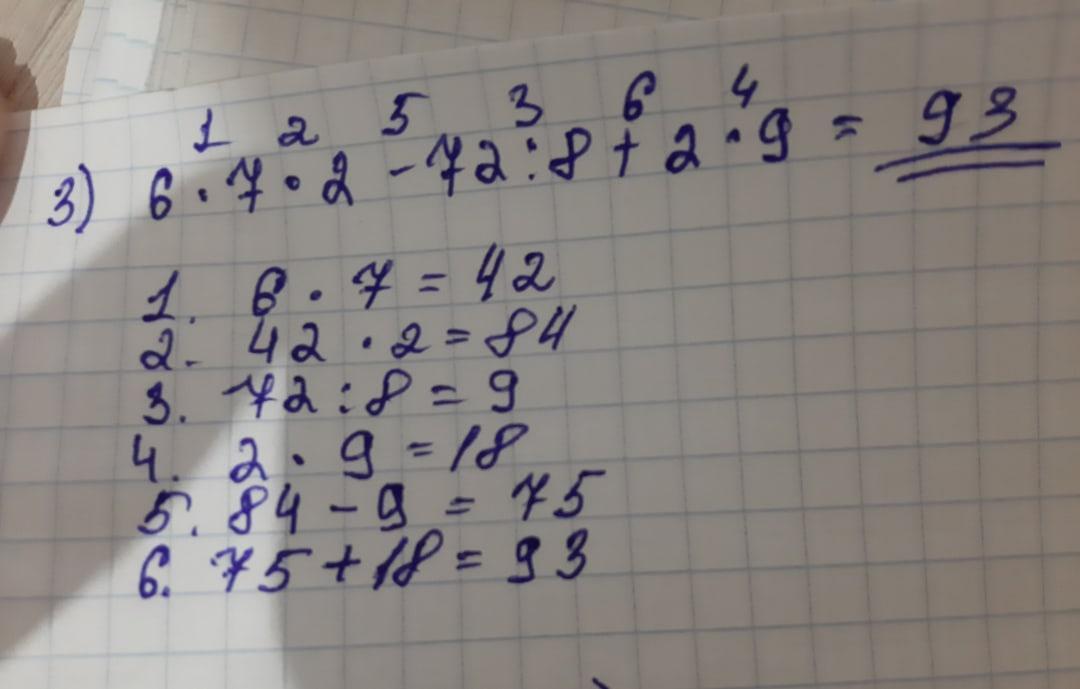 1 2 5 3 6 4
3) 6 · 7 · 2 - 72 : 8 + 2 · 9 = 93
1. 6 · 7 = 42
2. 42 · 2 = 84
3. 72 : 8 = 9
4. 2 · 9 = 18
5. 84 - 9 = 75
6. 75 + 18 = 93